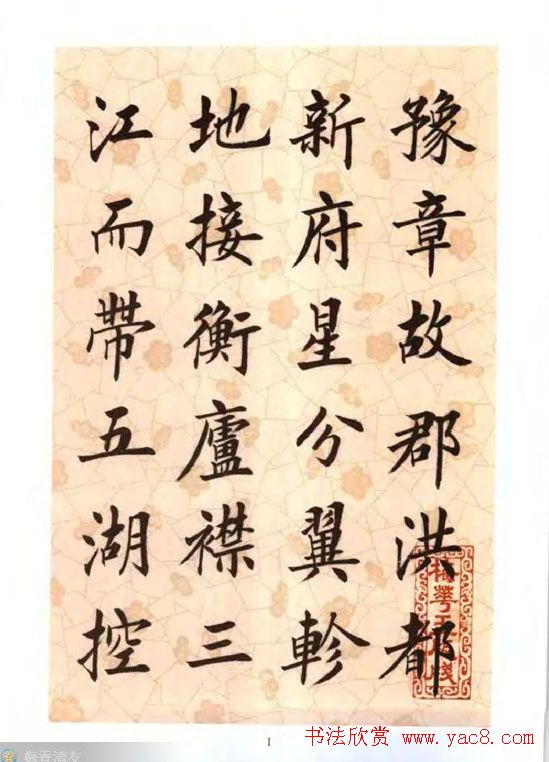 豫章故郡洪都
新府星分翼軫
地接衡廬襟三
江而帶五湖控
1
书法欣赏 www.yac8.com
梅香清友